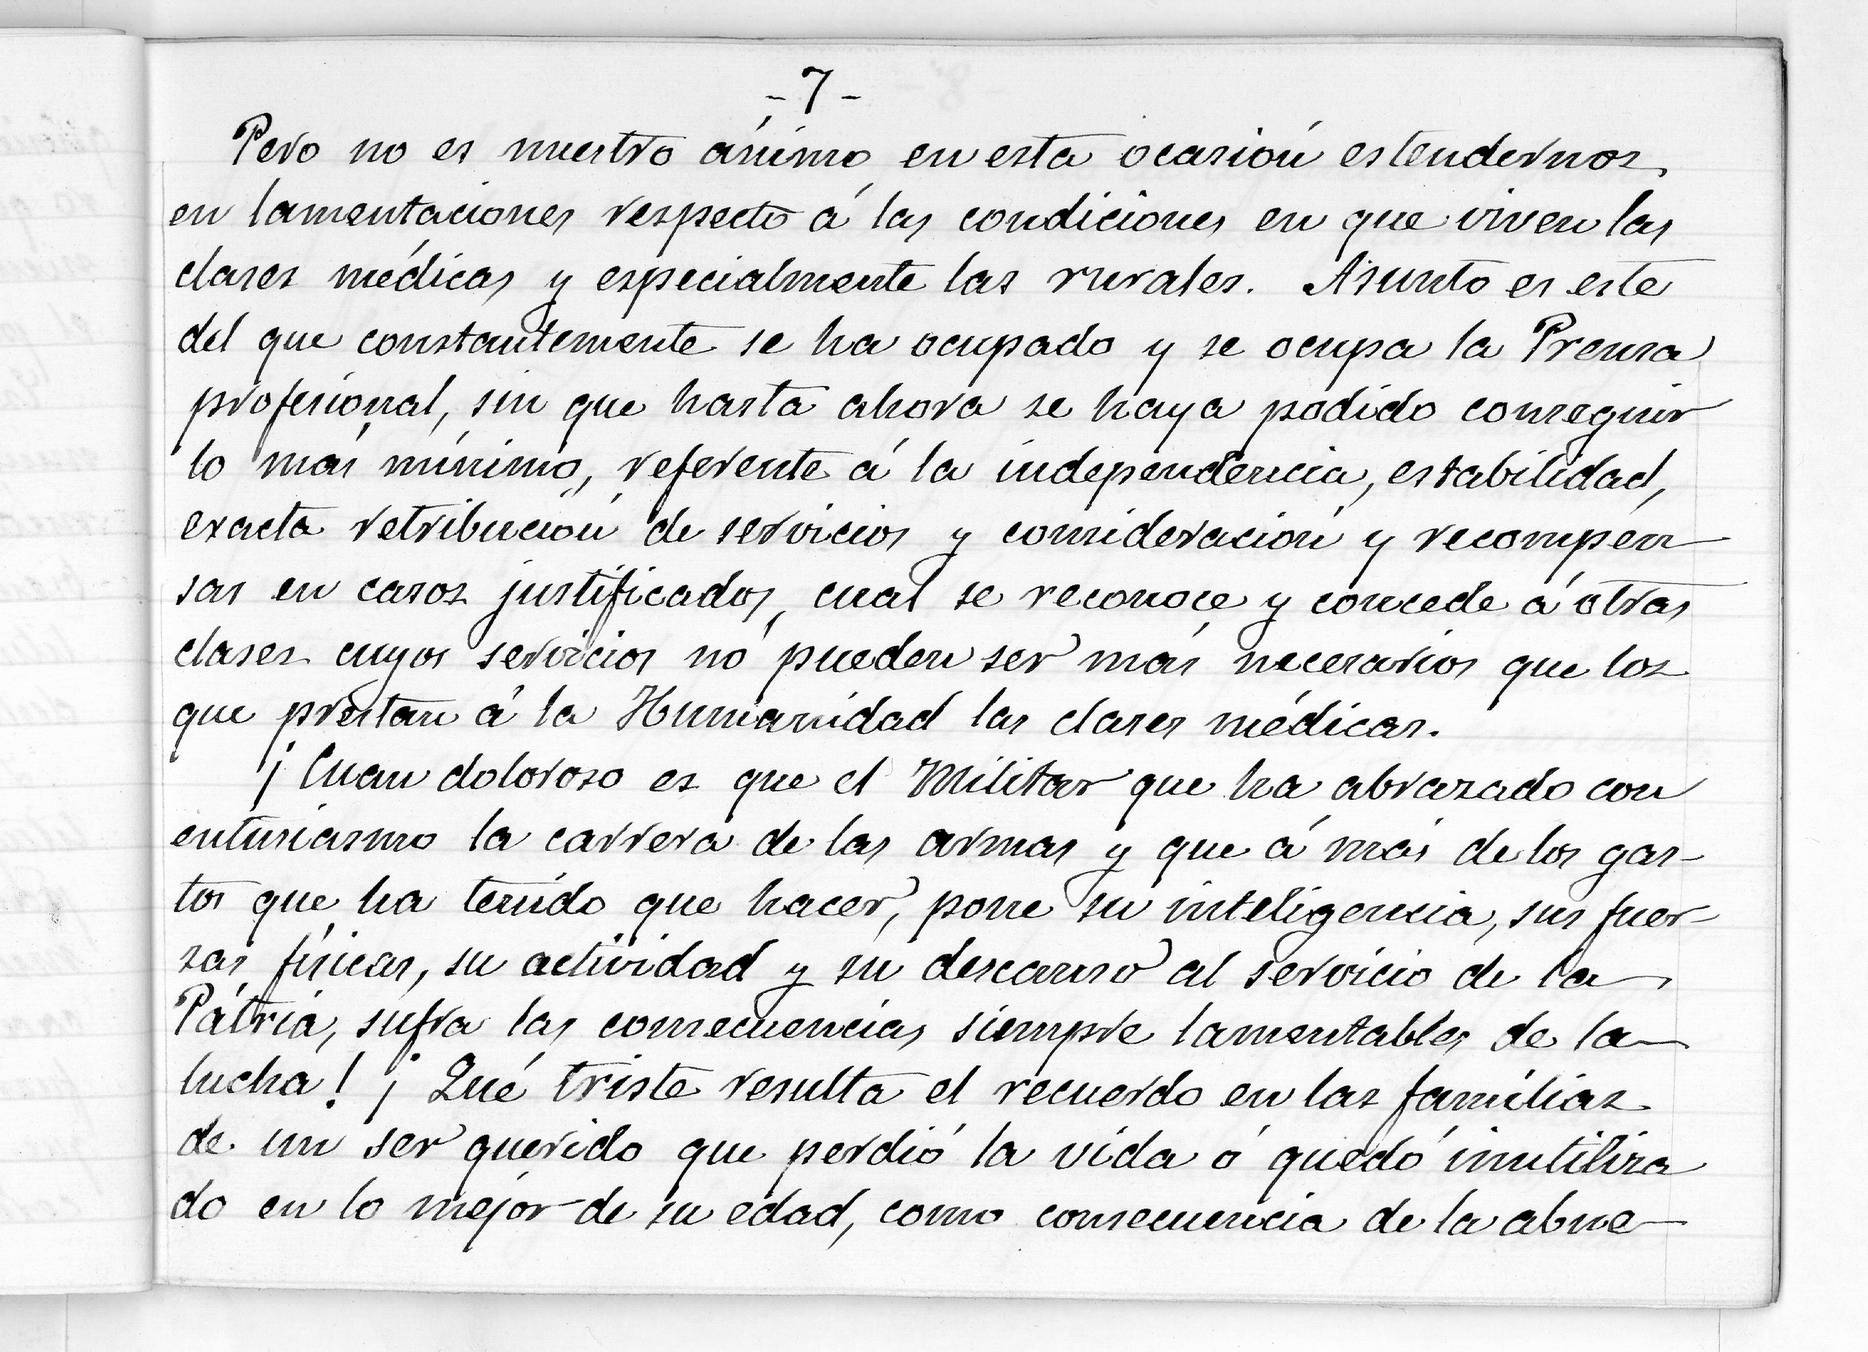 - 7 -
Pero no es nuestro ánimo en esta ocasión estendernos
en lamentaciones respecto á las condiciones en que viven las
clases médicas y especialmente las rurales. Asunto es este
del que constantemente se ha ocupado y se ocupa la Prensa
profesional, sin que hasta ahora se haya podido conseguir
lo más mínimo, referente á la independencia, estabilidad,
exacta retribución de servicios y consideración y recompen
sas en casos justificados, cual se reconoce y concede á otras
clases cuyos servicios no pueden ser más necesarios que los
que prestan á la Humanidad las clases médicas.
¡Cuan doloroso es que el Militar que ha abrazado con
entusiasmo la carrera de las armas y que á más de los gas-
tos que ha tenido que hacer, pone su inteligencia, sus fuer-
zas físicas, su actividad y su descanso al servicio de la
Pátria, sufra las consecuencias siempre lamentables de la
lucha! ¡Qué triste resulta el recuerdo en las famílias
de un ser querido que perdió la vida ó quedó inutiliza
do en lo mejor de su edad, como consecuencia de la abne-